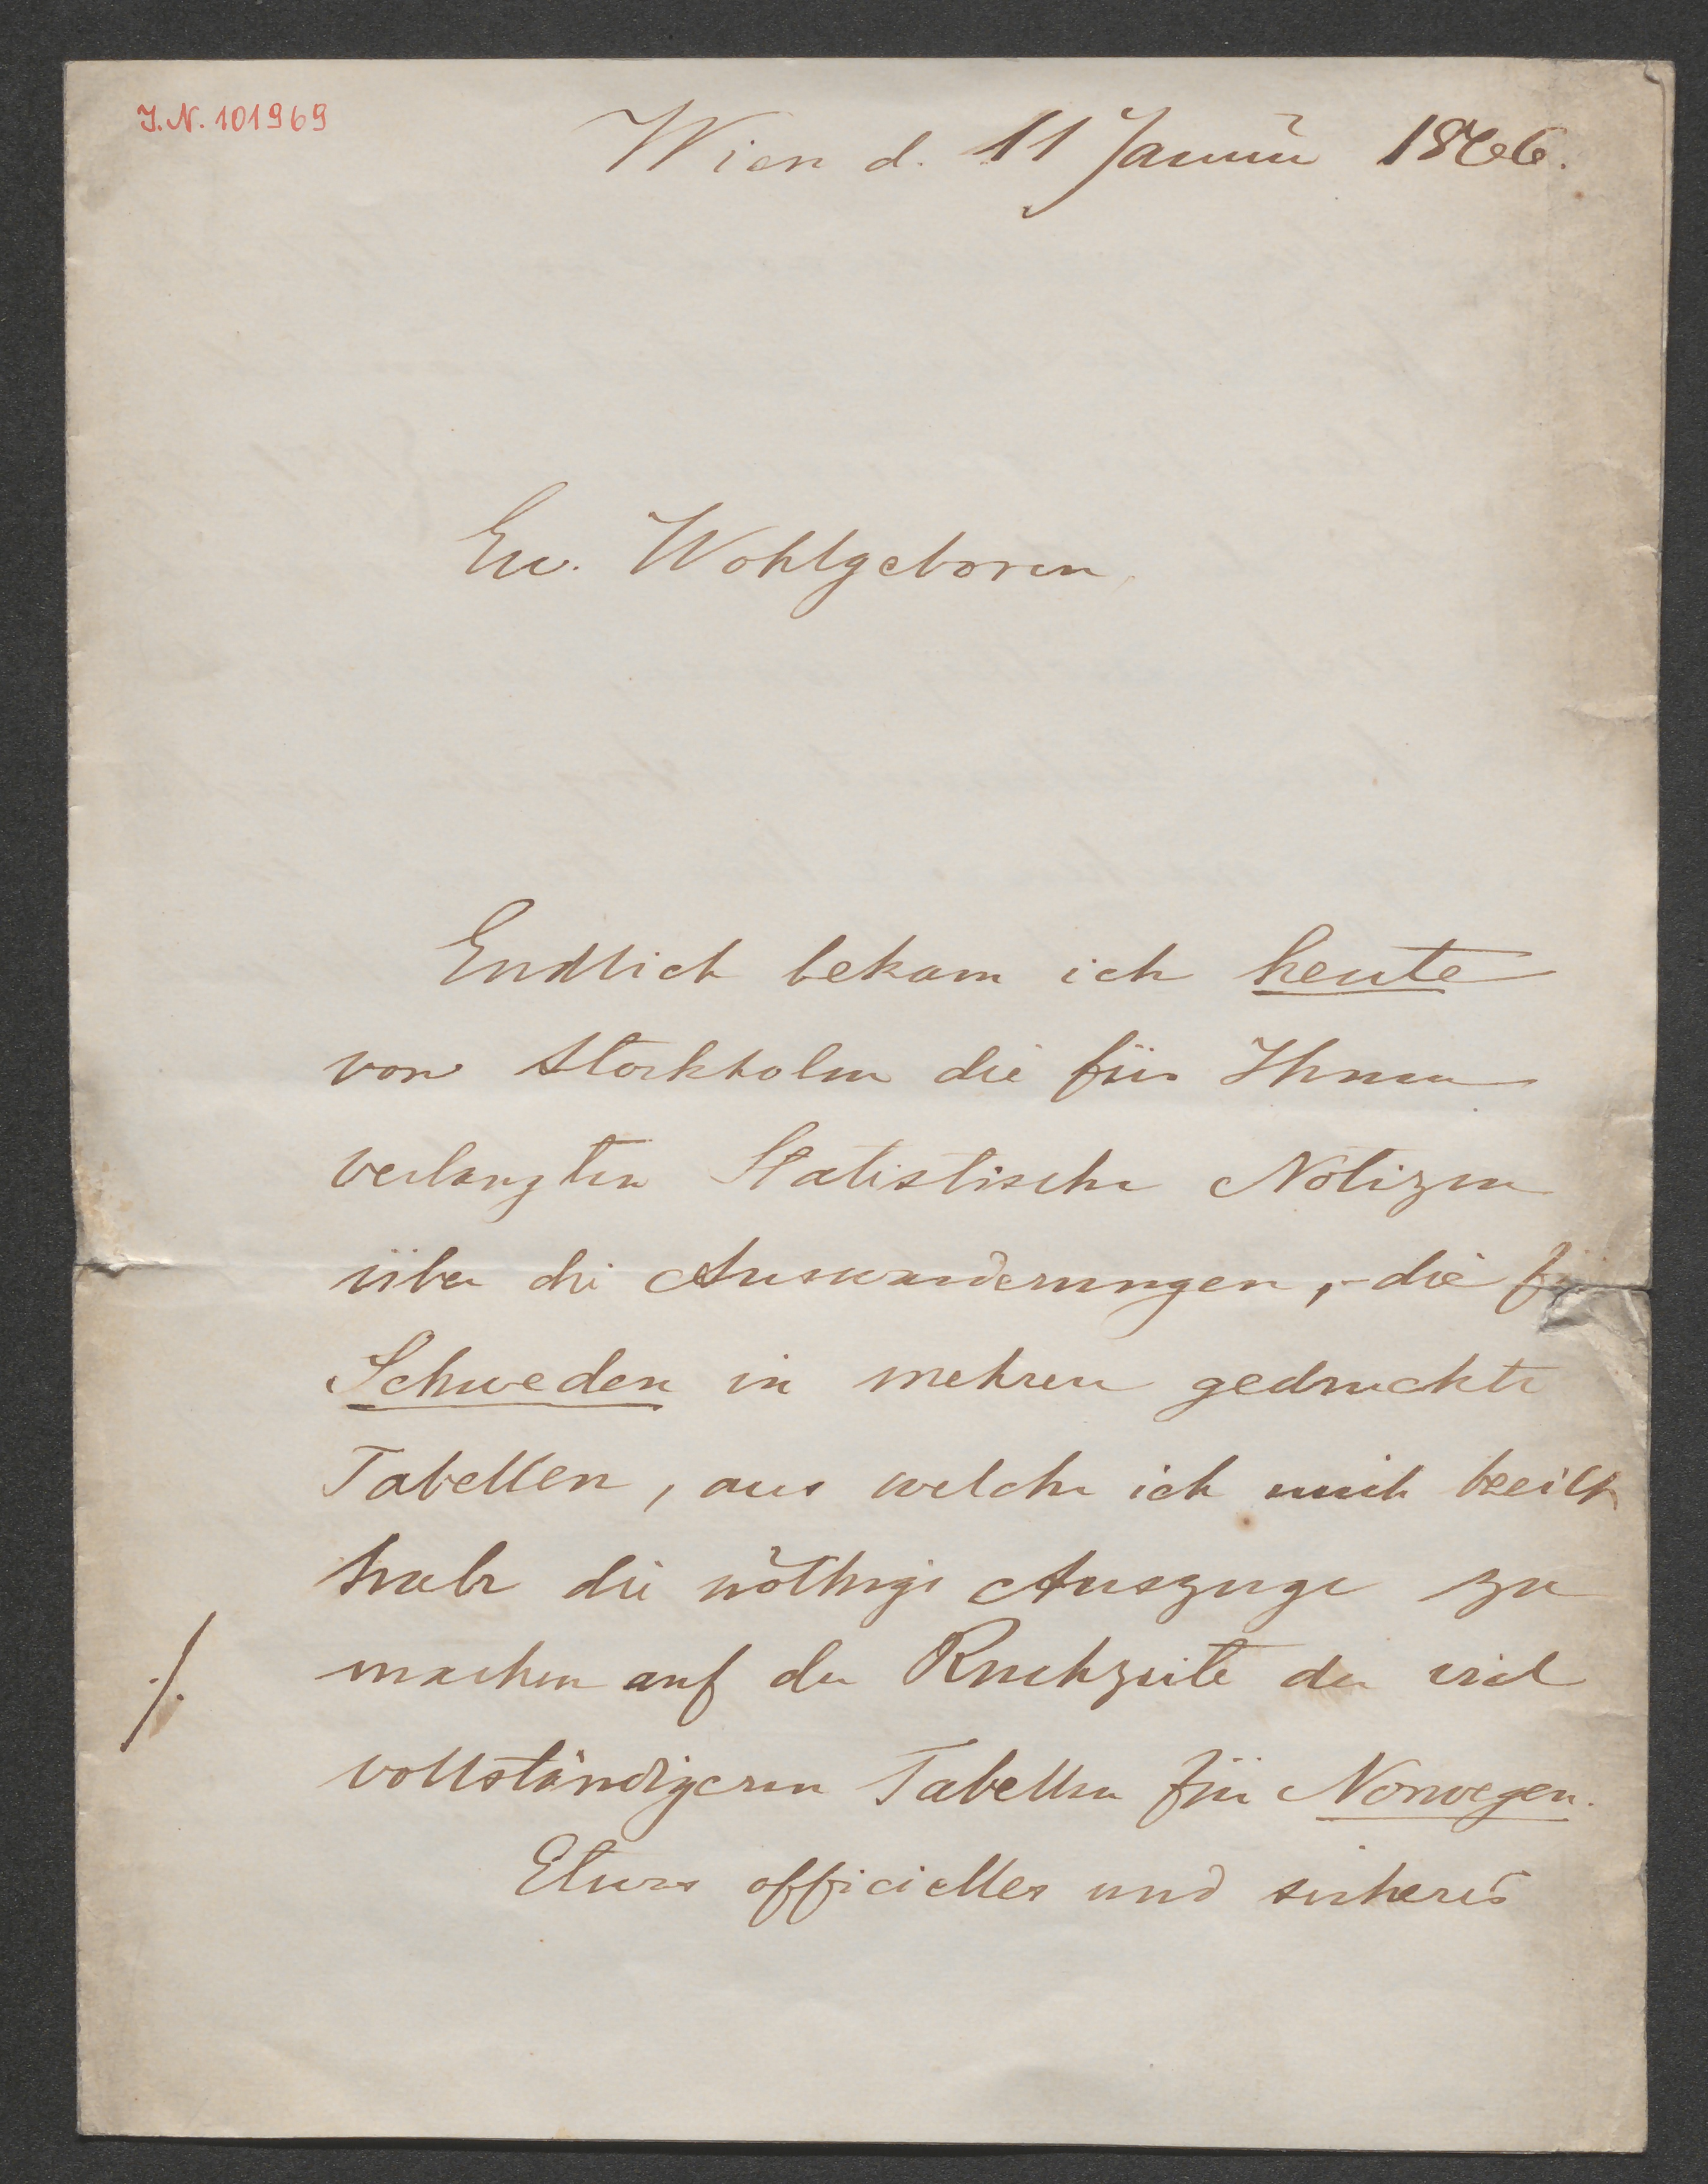 J.N. 101969
Wien d. 11 Januar 1866.
Ew. Wohlgeboren,
Endlich bekam ich heute
von Stockholm die für Ihnen
verlangten Statistische Notizen
über die Auswanderungen, - die
Schweden in mehren gedruckte
Tabellen, aus welche ich mich beeilt
habe die nöthige Auszuge zu
./. machen auf der Ruckzeite der viel
vollständigeren Tabellen für Norwegen.
Etwas officielles und sicheres